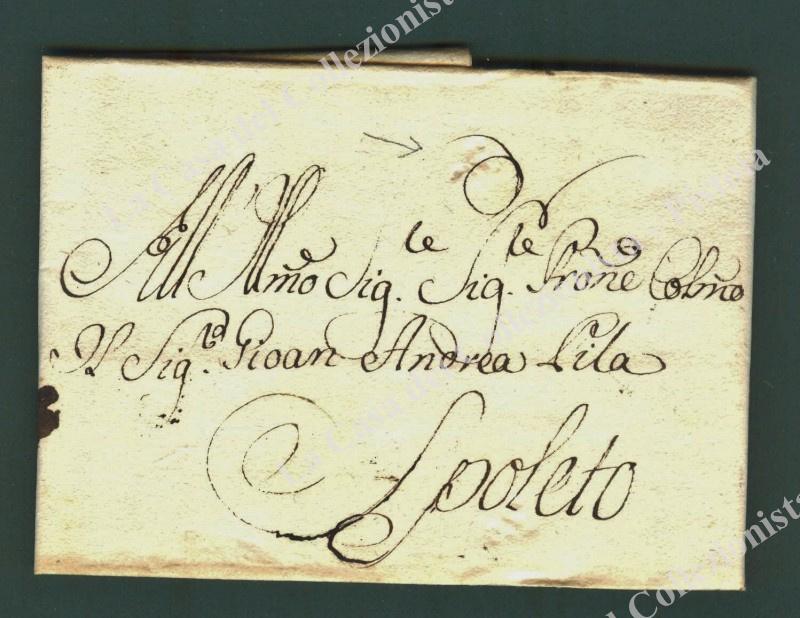 All'Illmo Sig.re Sig.re Prone Colmo
Il Sig.r Gioan Andrea Pila
Spoleto
La Casa del Collezionista - Pistoia
La Casa del Collezionista
del Collezionista